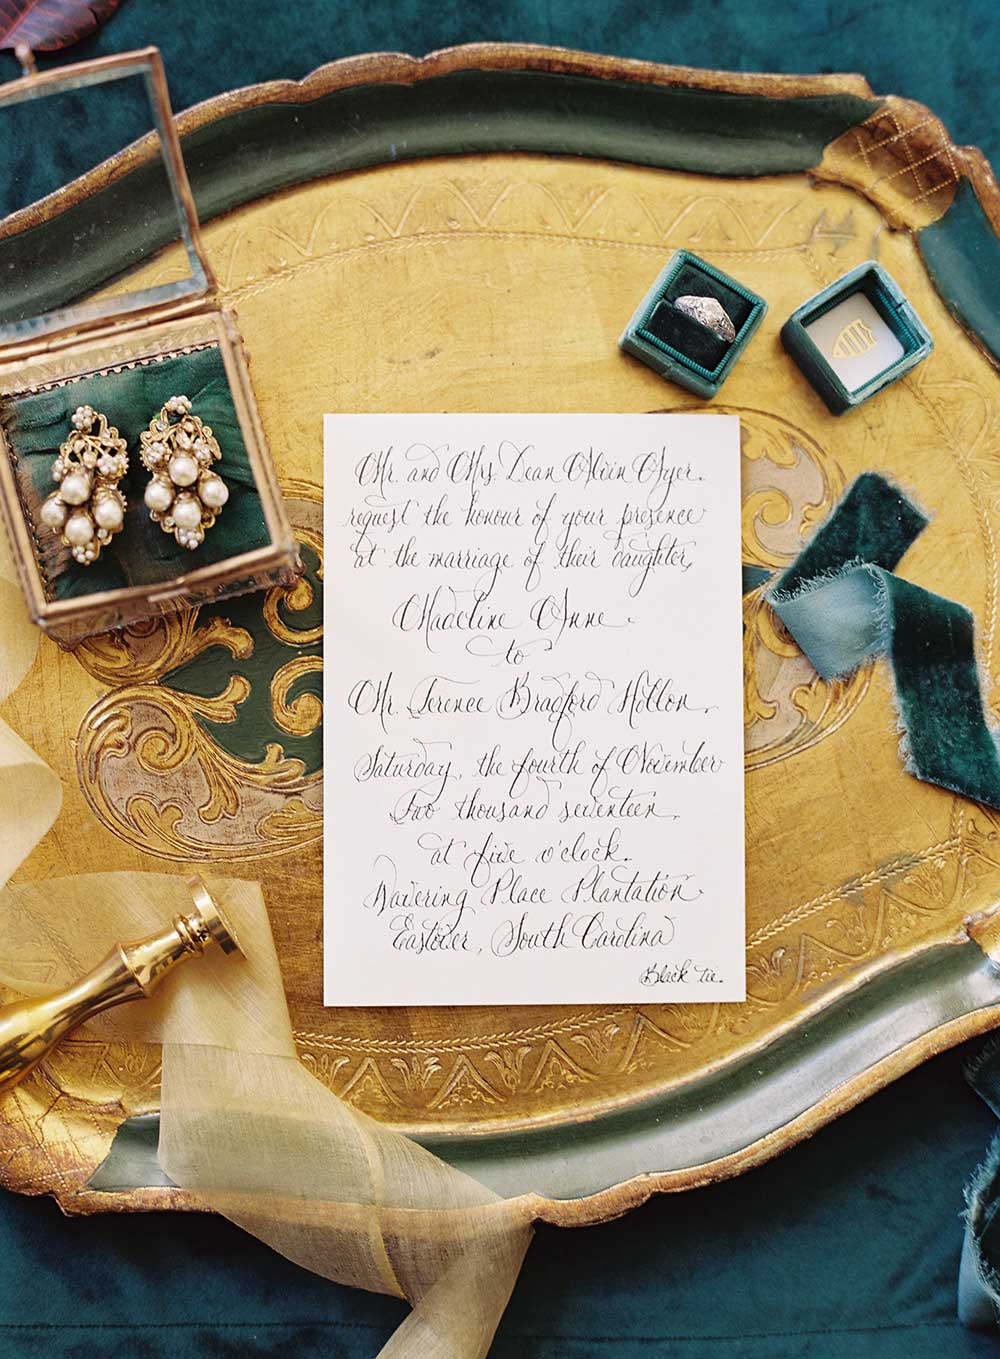 Mr. and Mrs. Dean Alvin Ayer.
request the honour of your presence
at the marriage of their daughter,
Madeline Anne.
to
Mr. Terence Bradford Hollon,
Saturday, the fourth of November
Two thousand seventeen,
at five o'clock.
Wavering Place Plantation.
Eastover, South Carolina
Black tie.